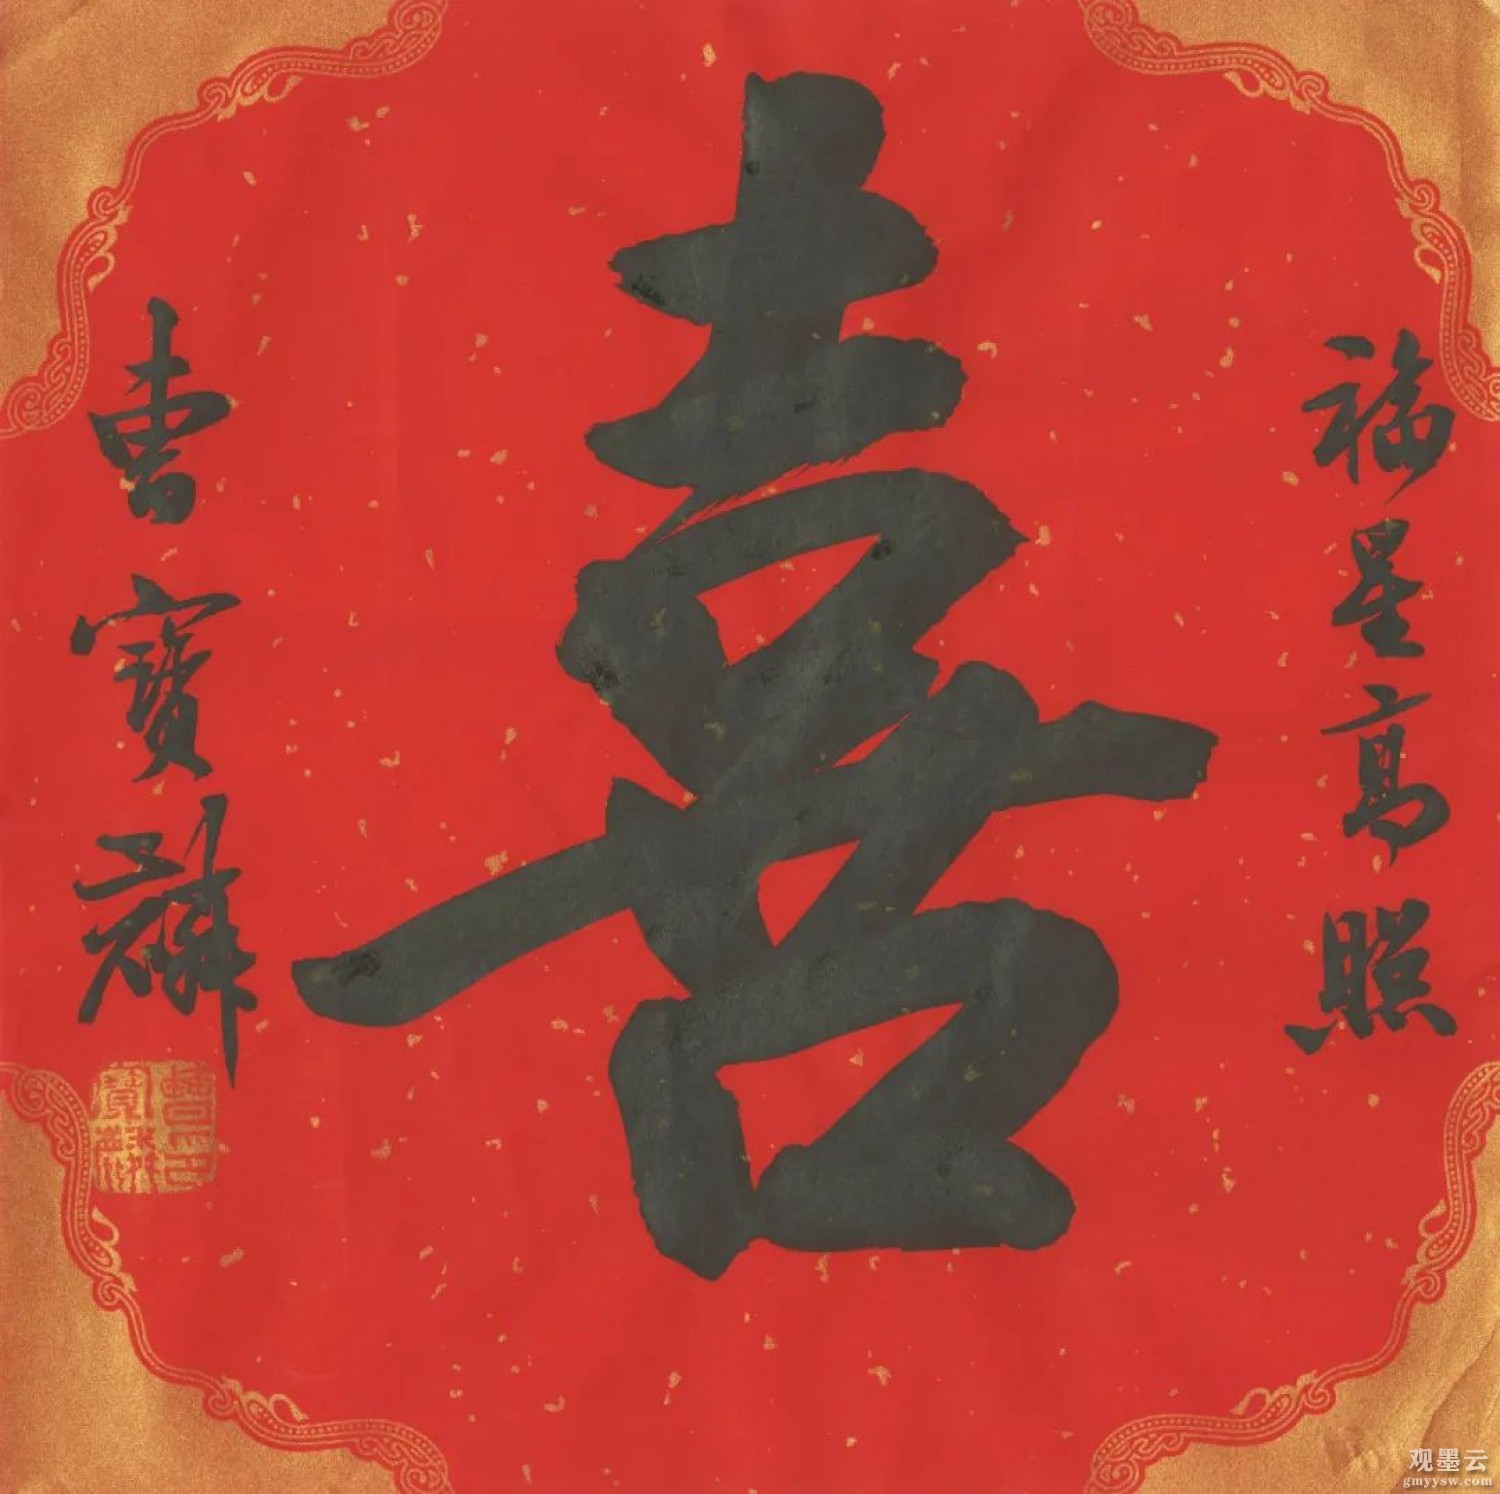 福星高照
喜
曹寶麟
曹寶麟印
观墨云
gmyysw.com